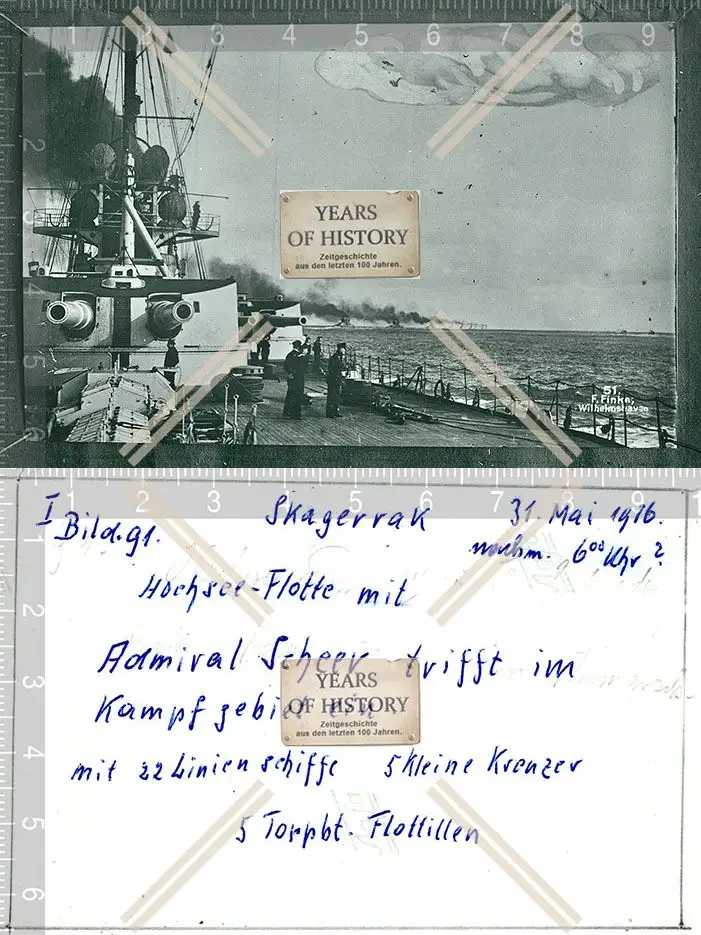 1 2 3 4 5 6 7 8 9
1
2
3
4
5
6
YEARS
OF HISTORY
Zeitgeschichte
aus den letzten 100 Jahren.
51
F. Finke,
Wilhelmshaven
1 2 3 4 5 6 7 8 9
I Bild.91. Skagerrak 31. Mai 1916.
nachm. 6⁰⁰ Uhr ?
Hochsee-Flotte mit
Admiral Scheer trifft im
Kampfgebiet ein
YEARS
OF HISTORY
Zeitgeschichte
aus den letzten 100 Jahren.
mit 22 Linienschiffe 5 Kleine Kreuzer
5 Torpbt. Flottillen
1
2
3
4
5
6